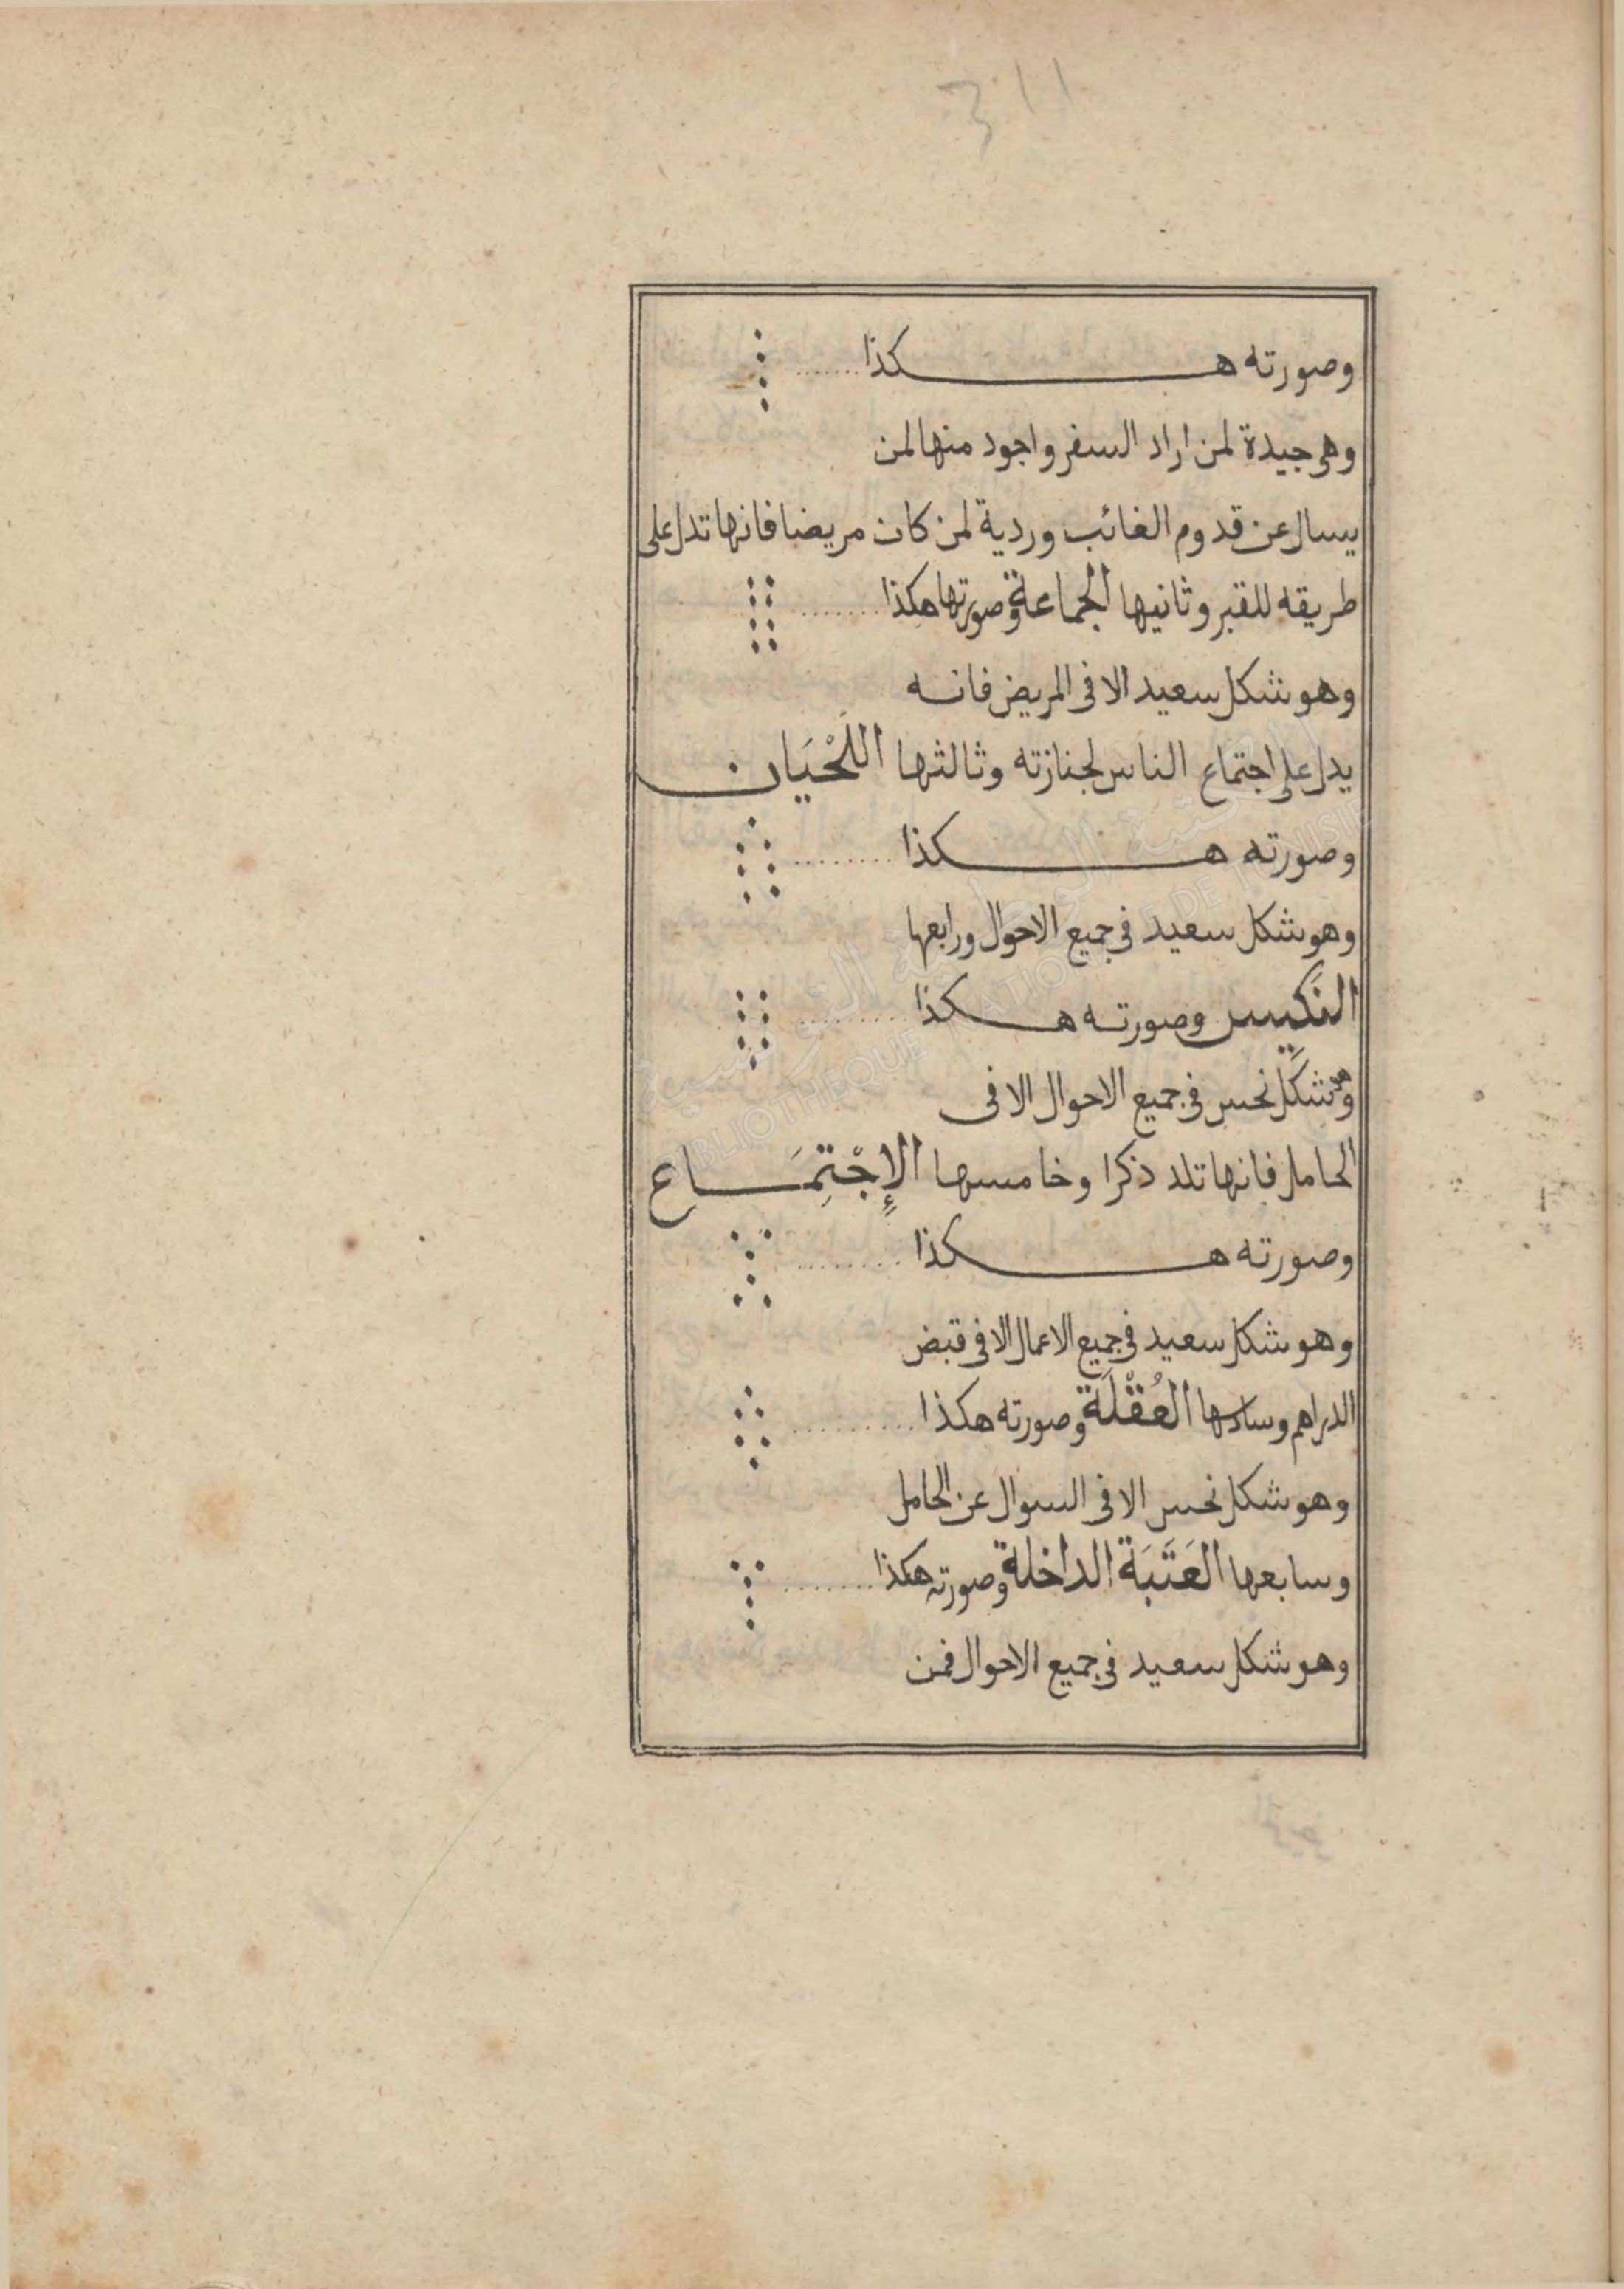 وصورته هكذا
وهي جيدة لمن اراد السفر واجود منها لمن
يسال عن قدوم الغائب وردية لمن كان مريضا فانها تدل على
طريقه للقبر وثانيها الجماعة وصورتها هكذا
وهو شكل سعيد الا في المريض فانه
يدل على اجتماع الناس لجنازته وثالثها اللَّحْيَان
وصورته هكذا
وهو شكل سعيد في جميع الاحوال ورابعها
النَكِيس وصورته هكذا
وهو شكل نحس في جميع الاحوال الا في
الحامل فانها تلد ذكرا وخامسها الإِجْتِمَاع
وصورته هكذا
وهو شكل سعيد في جميع الاعمال الا في قبض
الدراهم وسادسها العُقْلَة وصورته هكذا
وهو شكل نحس الا في السوال عن الحامل
وسابعها العَتَبَة الداخلة وصورته هكذا
وهو شكل سعيد في جميع الاحوال فمن
BIBLIOTHEQUE NATIONALE DE TUNISIE